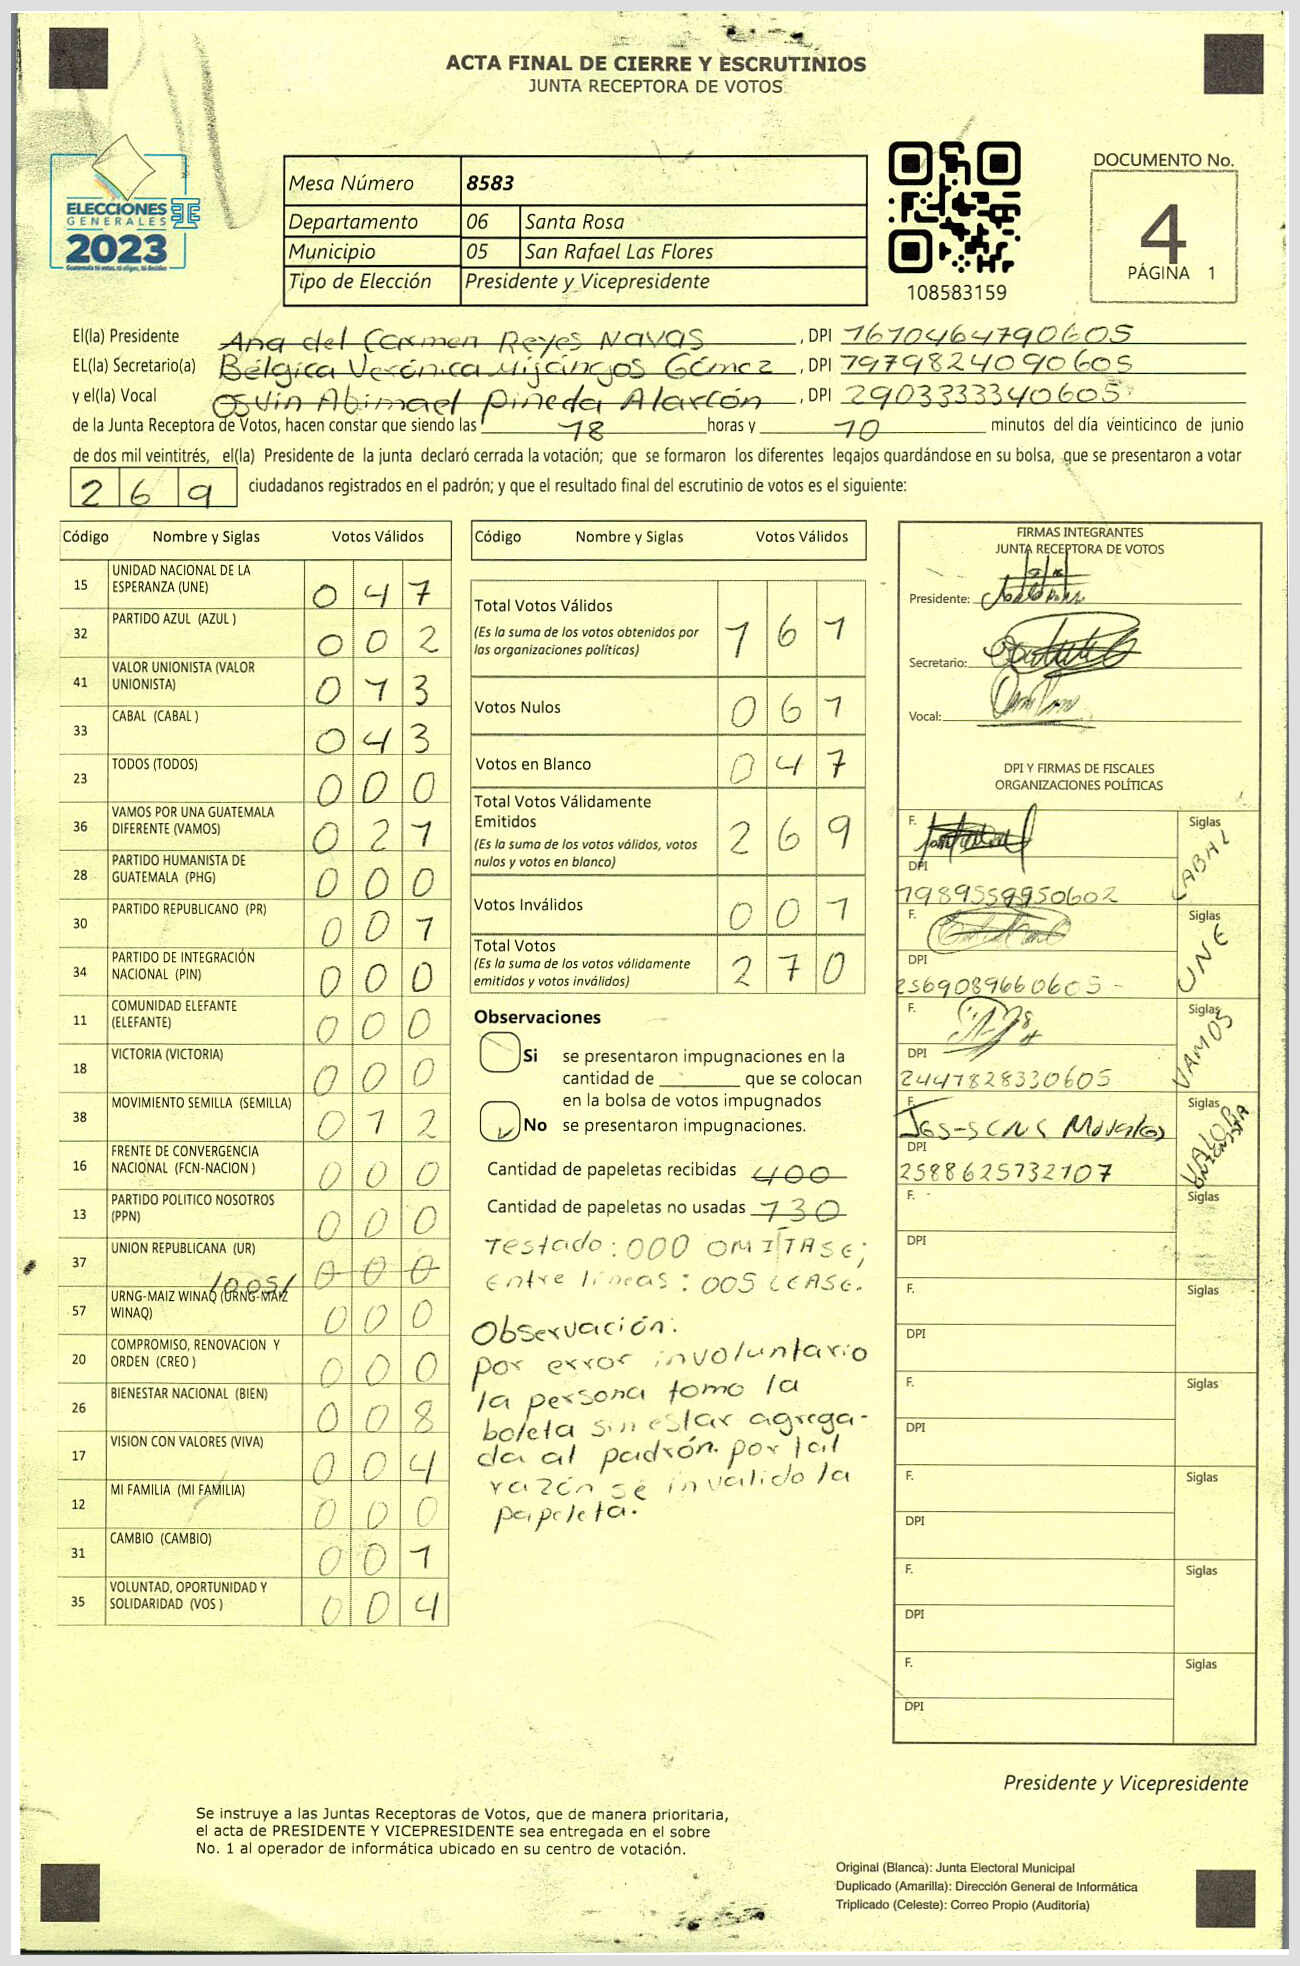 ACTA FINAL DE CIERRE Y ESCRUTINIOS
JUNTA RECEPTORA DE VOTOS
ELECCIONES
GENERALES
2023
Guatemala tú votas, tú eliges, tú decides
Mesa Número 8583
Departamento 06 Santa Rosa
Municipio 05 San Rafael Las Flores
Tipo de Elección Presidente y Vicepresidente
108583159
DOCUMENTO No.
4
PÁGINA 1
El(la) Presidente Ana del Carmen Reyes Navas, DPI 1670464790605
EL(la) Secretario(a) Bélgica Verónica Mijangos Gómez, DPI 7979824090605
y el(la) Vocal Osvin Abimael Pineda Alarcón, DPI 2903333340605
de la Junta Receptora de Votos, hacen constar que siendo las 18 horas y 10 minutos del día veinticinco de junio
de dos mil veintitrés, el(la) Presidente de la junta declaró cerrada la votación; que se formaron los diferentes legajos guardándose en su bolsa, que se presentaron a votar
269 ciudadanos registrados en el padrón; y que el resultado final del escrutinio de votos es el siguiente:
Código Nombre y Siglas Votos Válidos
15 UNIDAD NACIONAL DE LA ESPERANZA (UNE) 047
32 PARTIDO AZUL (AZUL ) 002
41 VALOR UNIONISTA (VALOR UNIONISTA) 013
33 CABAL (CABAL ) 043
23 TODOS (TODOS) 000
36 VAMOS POR UNA GUATEMALA DIFERENTE (VAMOS) 021
28 PARTIDO HUMANISTA DE GUATEMALA (PHG) 000
30 PARTIDO REPUBLICANO (PR) 001
34 PARTIDO DE INTEGRACIÓN NACIONAL (PIN) 000
11 COMUNIDAD ELEFANTE (ELEFANTE) 000
18 VICTORIA (VICTORIA) 000
38 MOVIMIENTO SEMILLA (SEMILLA) 012
16 FRENTE DE CONVERGENCIA NACIONAL (FCN-NACION ) 000
13 PARTIDO POLITICO NOSOTROS (PPN) 000
37 UNION REPUBLICANA (UR) 000
/005/
57 URNG-MAIZ WINAQ (URNG-MAIZ WINAQ) 000
20 COMPROMISO, RENOVACION Y ORDEN (CREO ) 000
26 BIENESTAR NACIONAL (BIEN) 008
17 VISION CON VALORES (VIVA) 004
12 MI FAMILIA (MI FAMILIA) 000
31 CAMBIO (CAMBIO) 001
35 VOLUNTAD, OPORTUNIDAD Y SOLIDARIDAD (VOS ) 004
Código Nombre y Siglas Votos Válidos
Total Votos Válidos 161
(Es la suma de los votos obtenidos por
las organizaciones políticas)
Votos Nulos 061
Votos en Blanco 047
Total Votos Válidamente
Emitidos 269
(Es la suma de los votos válidos, votos
nulos y votos en blanco)
Votos Inválidos 001
Total Votos 270
(Es la suma de los votos válidamente
emitidos y votos inválidos)
Observaciones
Si se presentaron impugnaciones en la
cantidad de ________ que se colocan
en la bolsa de votos impugnados
No se presentaron impugnaciones.
Cantidad de papeletas recibidas 400
Cantidad de papeletas no usadas 130
Testado: 000 OMITASE;
Entre líneas: 005 LEASE.
Observación:
por error involuntario
la persona tomo la
boleta sin estar agrega-
da al padrón. por tal
razón se invalido la
papeleta.
FIRMAS INTEGRANTES
JUNTA RECEPTORA DE VOTOS
Presidente:
Secretario:
Vocal:
DPI Y FIRMAS DE FISCALES
ORGANIZACIONES POLÍTICAS
F. Siglas CABAL
DPI
1989559950602
F. Siglas UNE
DPI
2569089660605
F. Siglas VAMOS
DPI
2447828330605
F. Siglas VALOR UNIONISTA
DPI
2588625732107
F. Siglas
DPI
F. Siglas
DPI
F. Siglas
DPI
F. Siglas
DPI
F. Siglas
DPI
F. Siglas
DPI
Presidente y Vicepresidente
Se instruye a las Juntas Receptoras de Votos, que de manera prioritaria,
el acta de PRESIDENTE Y VICEPRESIDENTE sea entregada en el sobre
No. 1 al operador de informática ubicado en su centro de votación.
Original (Blanca): Junta Electoral Municipal
Duplicado (Amarilla): Dirección General de Informática
Triplicado (Celeste): Correo Propio (Auditoría)